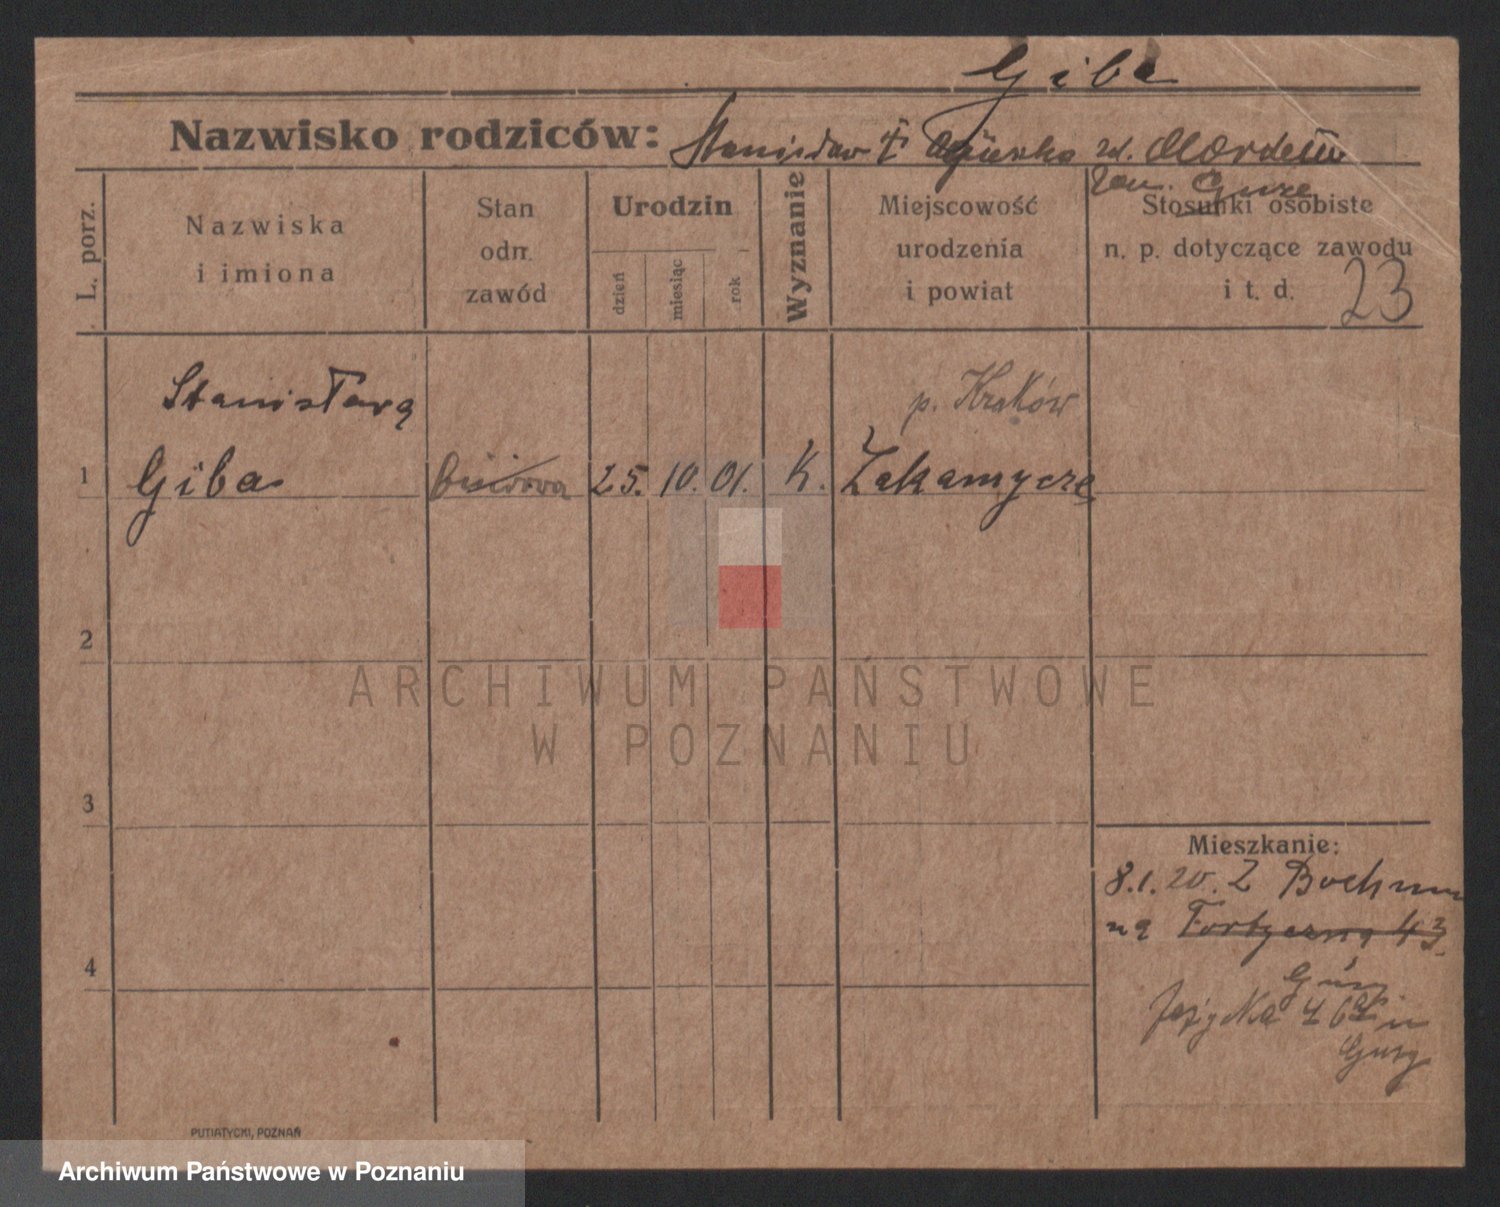 Giba
Nazwisko rodziców: Stanisław i Agieszka zd.
zam. Gurze
L. porz.
Nazwiska
i imiona
Stan
odn.
zawód
Urodzin
dzień
miesiąc
rok
Wyznanie
Miejscowość
urodzenia
i powiat
Stosunki osobiste
n. p. dotyczące zawodu
i t. d. 23
Stanisława
p. Kraków
1 Giba 25. 10. 01. K. Zakamycze
2
ARCHIWUM PAŃSTWOWE
W POZNANIU
3
Mieszkanie:
8.1.20. Z Bochum
na Forteczna 43
4
PUTIATYCKI, POZNAŃ
Archiwum Państwowe w Poznaniu